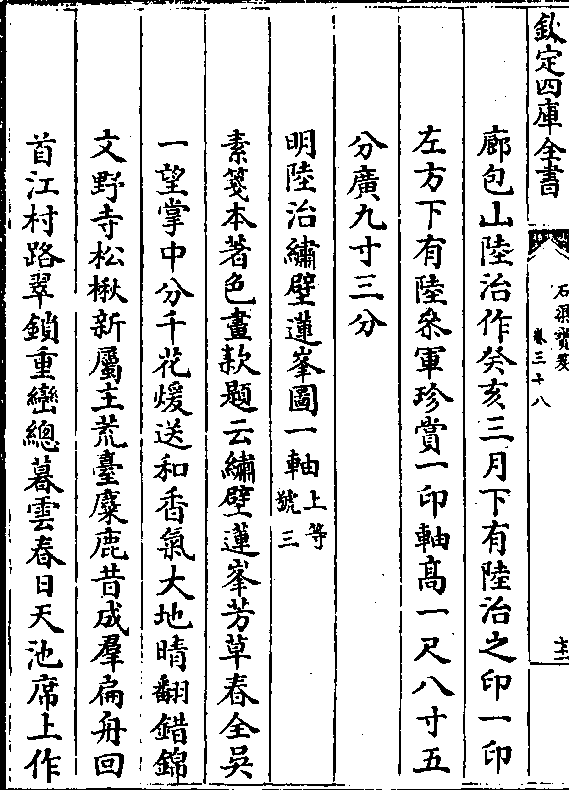 欽定四庫全書
石渠寳笈
卷三十八
廊包山陸治作癸亥三月下有陸治之印一印
左方下有陸叅軍珍賞一印軸髙一尺八寸五
分廣九寸三分
明陸治繡壁蓮峯圖一軸上等
號三
素箋本著色畫款題云繡壁蓮峯芳草春全吳
一望掌中分千花煖送和香氣大地晴翻錯錦
文野寺松楸新屬主荒臺麋鹿昔成羣扁舟回
首江村路翠鎖重巒總暮雲春日天池席上作